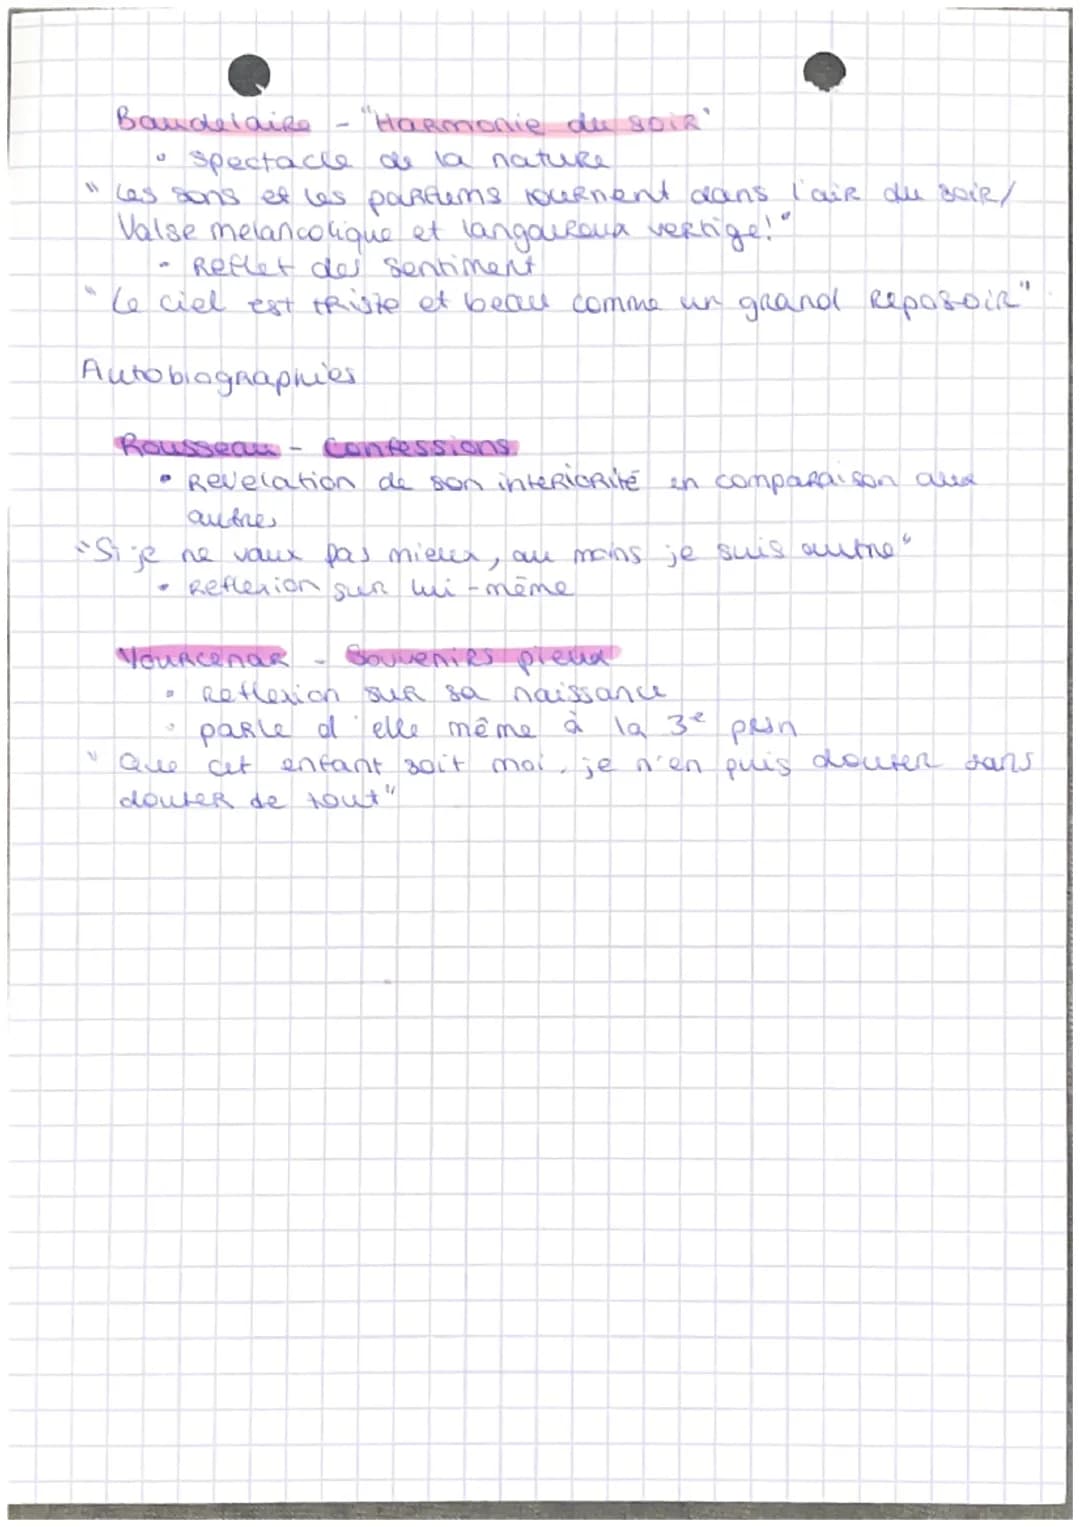 Baudelaire - "Harmonie du soir"
• spectacle de la nature
"Les sons et les parfums tournent dans l'air du soir/
Valse melancolique et langoureux vertige!"
• Reflet des sentiment
"Le ciel est triste et beau comme un grand reposoir"
Autobiographies
Rousseau - Confessions
• Revelation de son interiorité en comparaison aux
autres
"Si je ne vaux pas mieux, au moins je suis autre"
• Reflexion sur lui-même
Yourcenar - Souvenirs pieux
• reflexion sur sa naissance
• parle d'elle même à la 3e prsn
"Que cet enfant soit moi, je n'en puis douter sans
douter de tout"